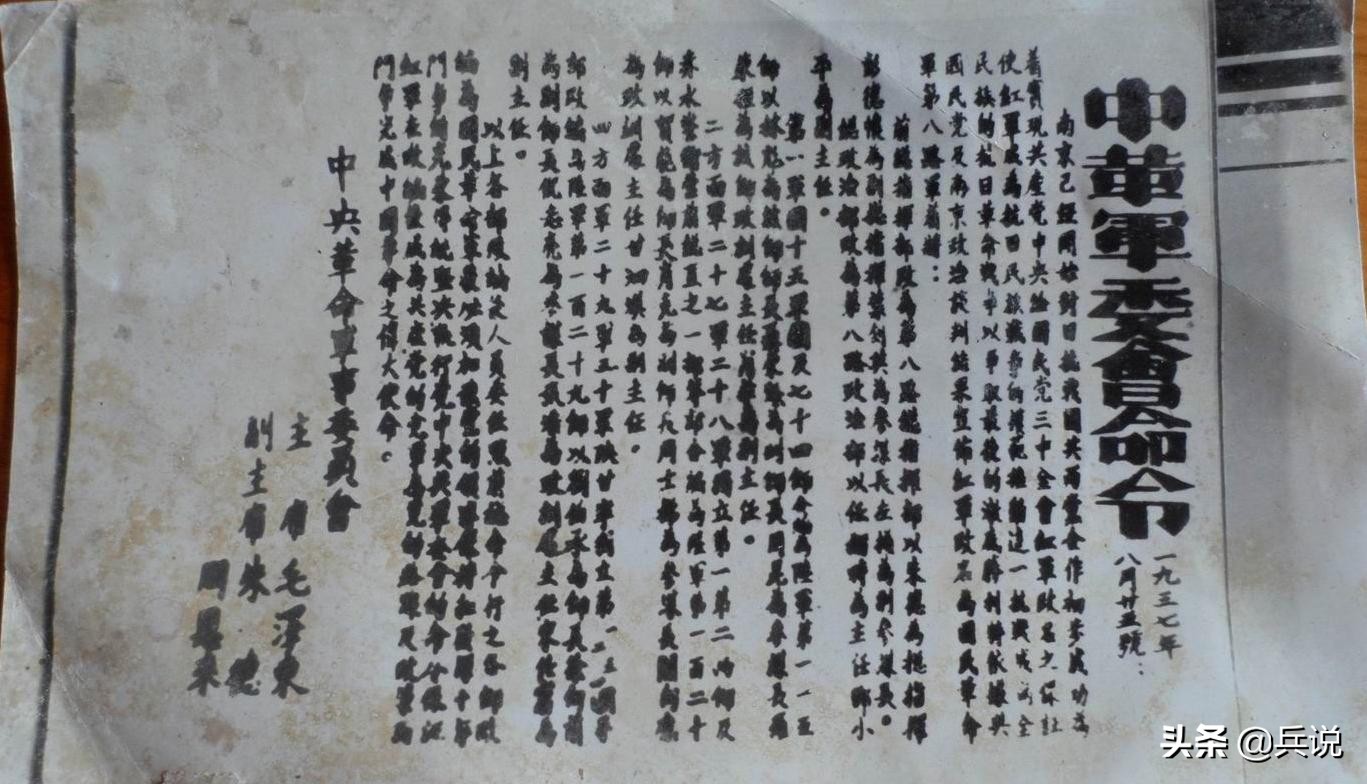 中革軍委會命令
一九三七年
八月廿五號：
南京已經開始對日抗戰國共兩黨合作初步成功為
着實現共產黨中央給國民党三中全會紅軍改名之保証
使紅軍成為抗日民族戰爭的模範推動這一抗戰成為全
民族的抗日革命戰爭以爭取最後的澈底勝利特依據與
國民党及南京政治談判結果宣佈紅軍改名為國民革命
軍第八路軍
前總指揮部改為第八路總指揮部以朱德為總指揮
彭德懷為副總指揮葉劍英為參謀長左權為副參謀長。
總政治部改為第八路政治部以任弼時為主任鄧小
平為副主任。
第一軍團十五軍團及七十四師合編為陸軍第一一五
師以林彪為該師師長聶榮臻為副師長周昆為參謀長羅
榮桓為該師政訓處主任蕭華為副主任。
二方面軍二十七軍二十八軍獨立第一第二兩師及
赤水警衛營前總直之一部等部合編為陸軍第一百二十
師以賀龍為師長蕭克為副師長周士第為參謀長關向應
為政訓處主任甘泗淇為副主任。
四方面軍二十九軍三十軍陝甘寧獨立第一二三四團等
部改編為陸軍第一百二十九師以劉伯承為師長徐向前
為副師長倪志亮為參謀長張浩為政訓處主任宋任窮為
副主任。
以上各部改編後人員委任照前總命令行之各部改
編為國民革命軍後必須加強黨的領導保持和發揚十年
鬥爭的光榮傳統堅決執行党中央與軍委會的命令保証
紅軍在改編後成為共產党的党軍為党的路線及政策而
鬥爭完成中國革命之偉大使命。
中央革命軍事委員會
主席 毛澤東
副主席 朱德
周恩來
头条 @兵说